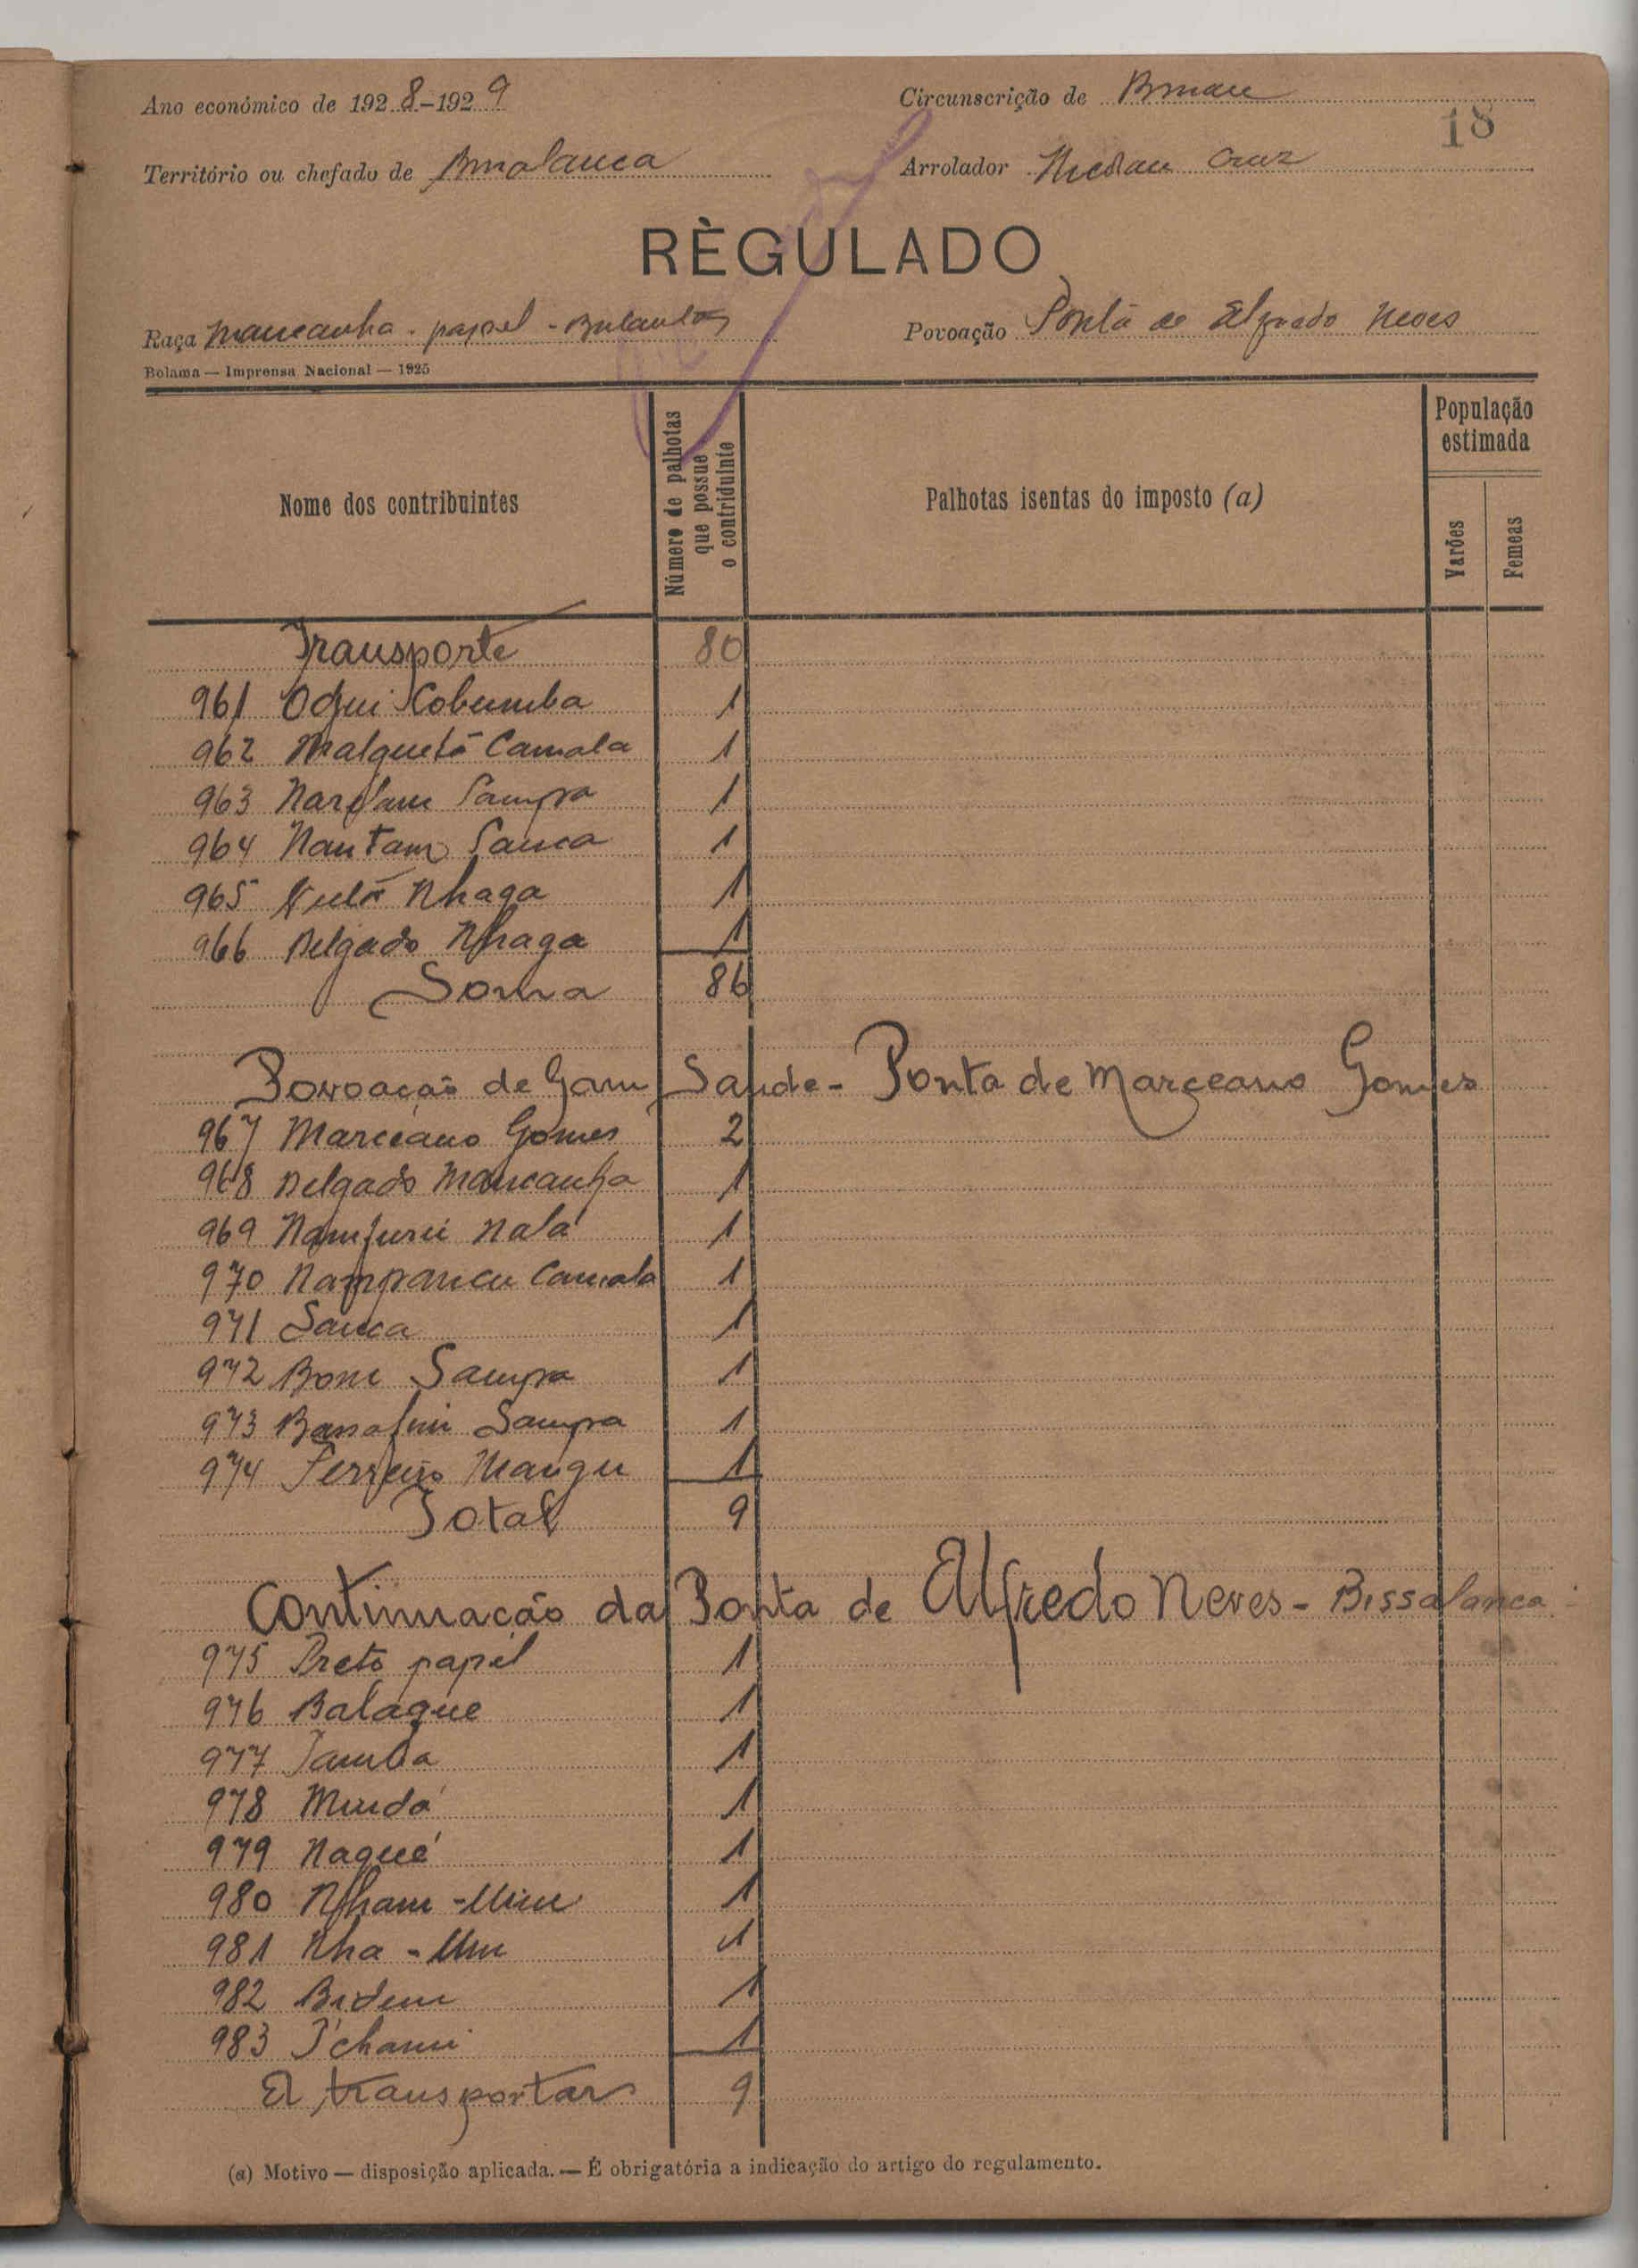 Ano económico de 1928-1929
Circunscrição de Bissau
18
Território ou chefado de Bissalanca
Arrolador Nicolau Cruz
RÈGULADO
Raça Mancanha - papel - Balantas
Povoação Ponta de Alfredo Neves
Bolama — Imprensa Nacional — 1925
Nome dos contribuintes
Número de palhotas que possue o contriduinte
Palhotas isentas do imposto (a)
População estimada
Varões
Femeas
Transporte 80
961 Ofui Cobumba 1
962 Malquetá Camala 1
963 Sampa 1
964 Nantam Sanca 1
965 Nhaga 1
966 Delgado Nhaga 1
Soma 86
Povoação de Gam Saude - Ponta de Marceano Gomes
967 Marceano Gomes 2
968 Delgado Mancanha 1
969 Namfurú Nalá 1
970 Nampancu Camala 1
971 Sanca 1
972 Boni Sampa 1
973 Sampa 1
974 Ferreira Mangu 1
Total 9
Continuação da Ponta de Alfredo Neves - Bissalanca
975 Preto papel 1
976 Balaque 1
977 Tamba 1
978 Mindá 1
979 Naqué 1
980 Nham - 1
981 Nha - 1
982 Bidem 1
983 T'chami 1
A transportar 9
(a) Motivo — disposição aplicada. — É obrigatória a indicação do artigo do regulamento.